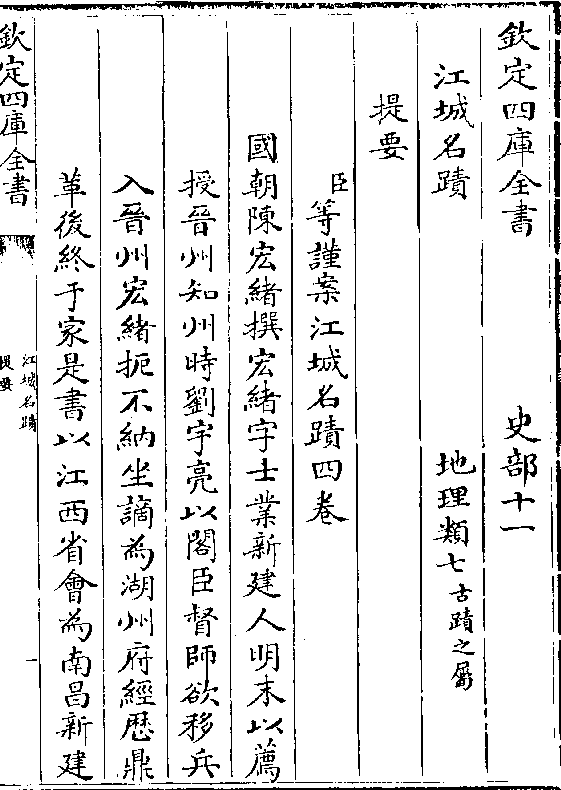 欽定四庫全書　史部十一
江城名蹟　地理類七古蹟之屬
提要
臣等謹案江城名蹟四卷
國朝陳宏緒撰宏緒字士業新建人明末以薦
授晉州知州時劉宇亮以閣臣督師欲移兵
入晉州宏緒扼不納坐謫為湖州府經歴鼎
革後終于家是書以江西省會為南昌新建
欽定四庫全書
江城名蹟
提要
一